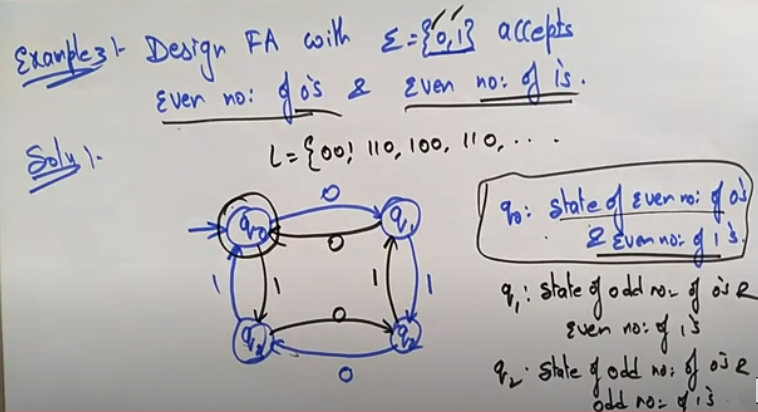 Example 3:- Design FA with Σ={0,1} accepts
Even no: of 0's & Even no: of 1's.
Solu:-
L={00! 110, 100, 110, ...
q0: state of Even no: of 0's
& Even no: of 1's.
q1: state of odd no: of 0's &
Even no: of 1's
q2: state of odd no: of 0's &
odd no: of 1's
0
q0 q1
0
1 1 1 1
0
q3 q2
0